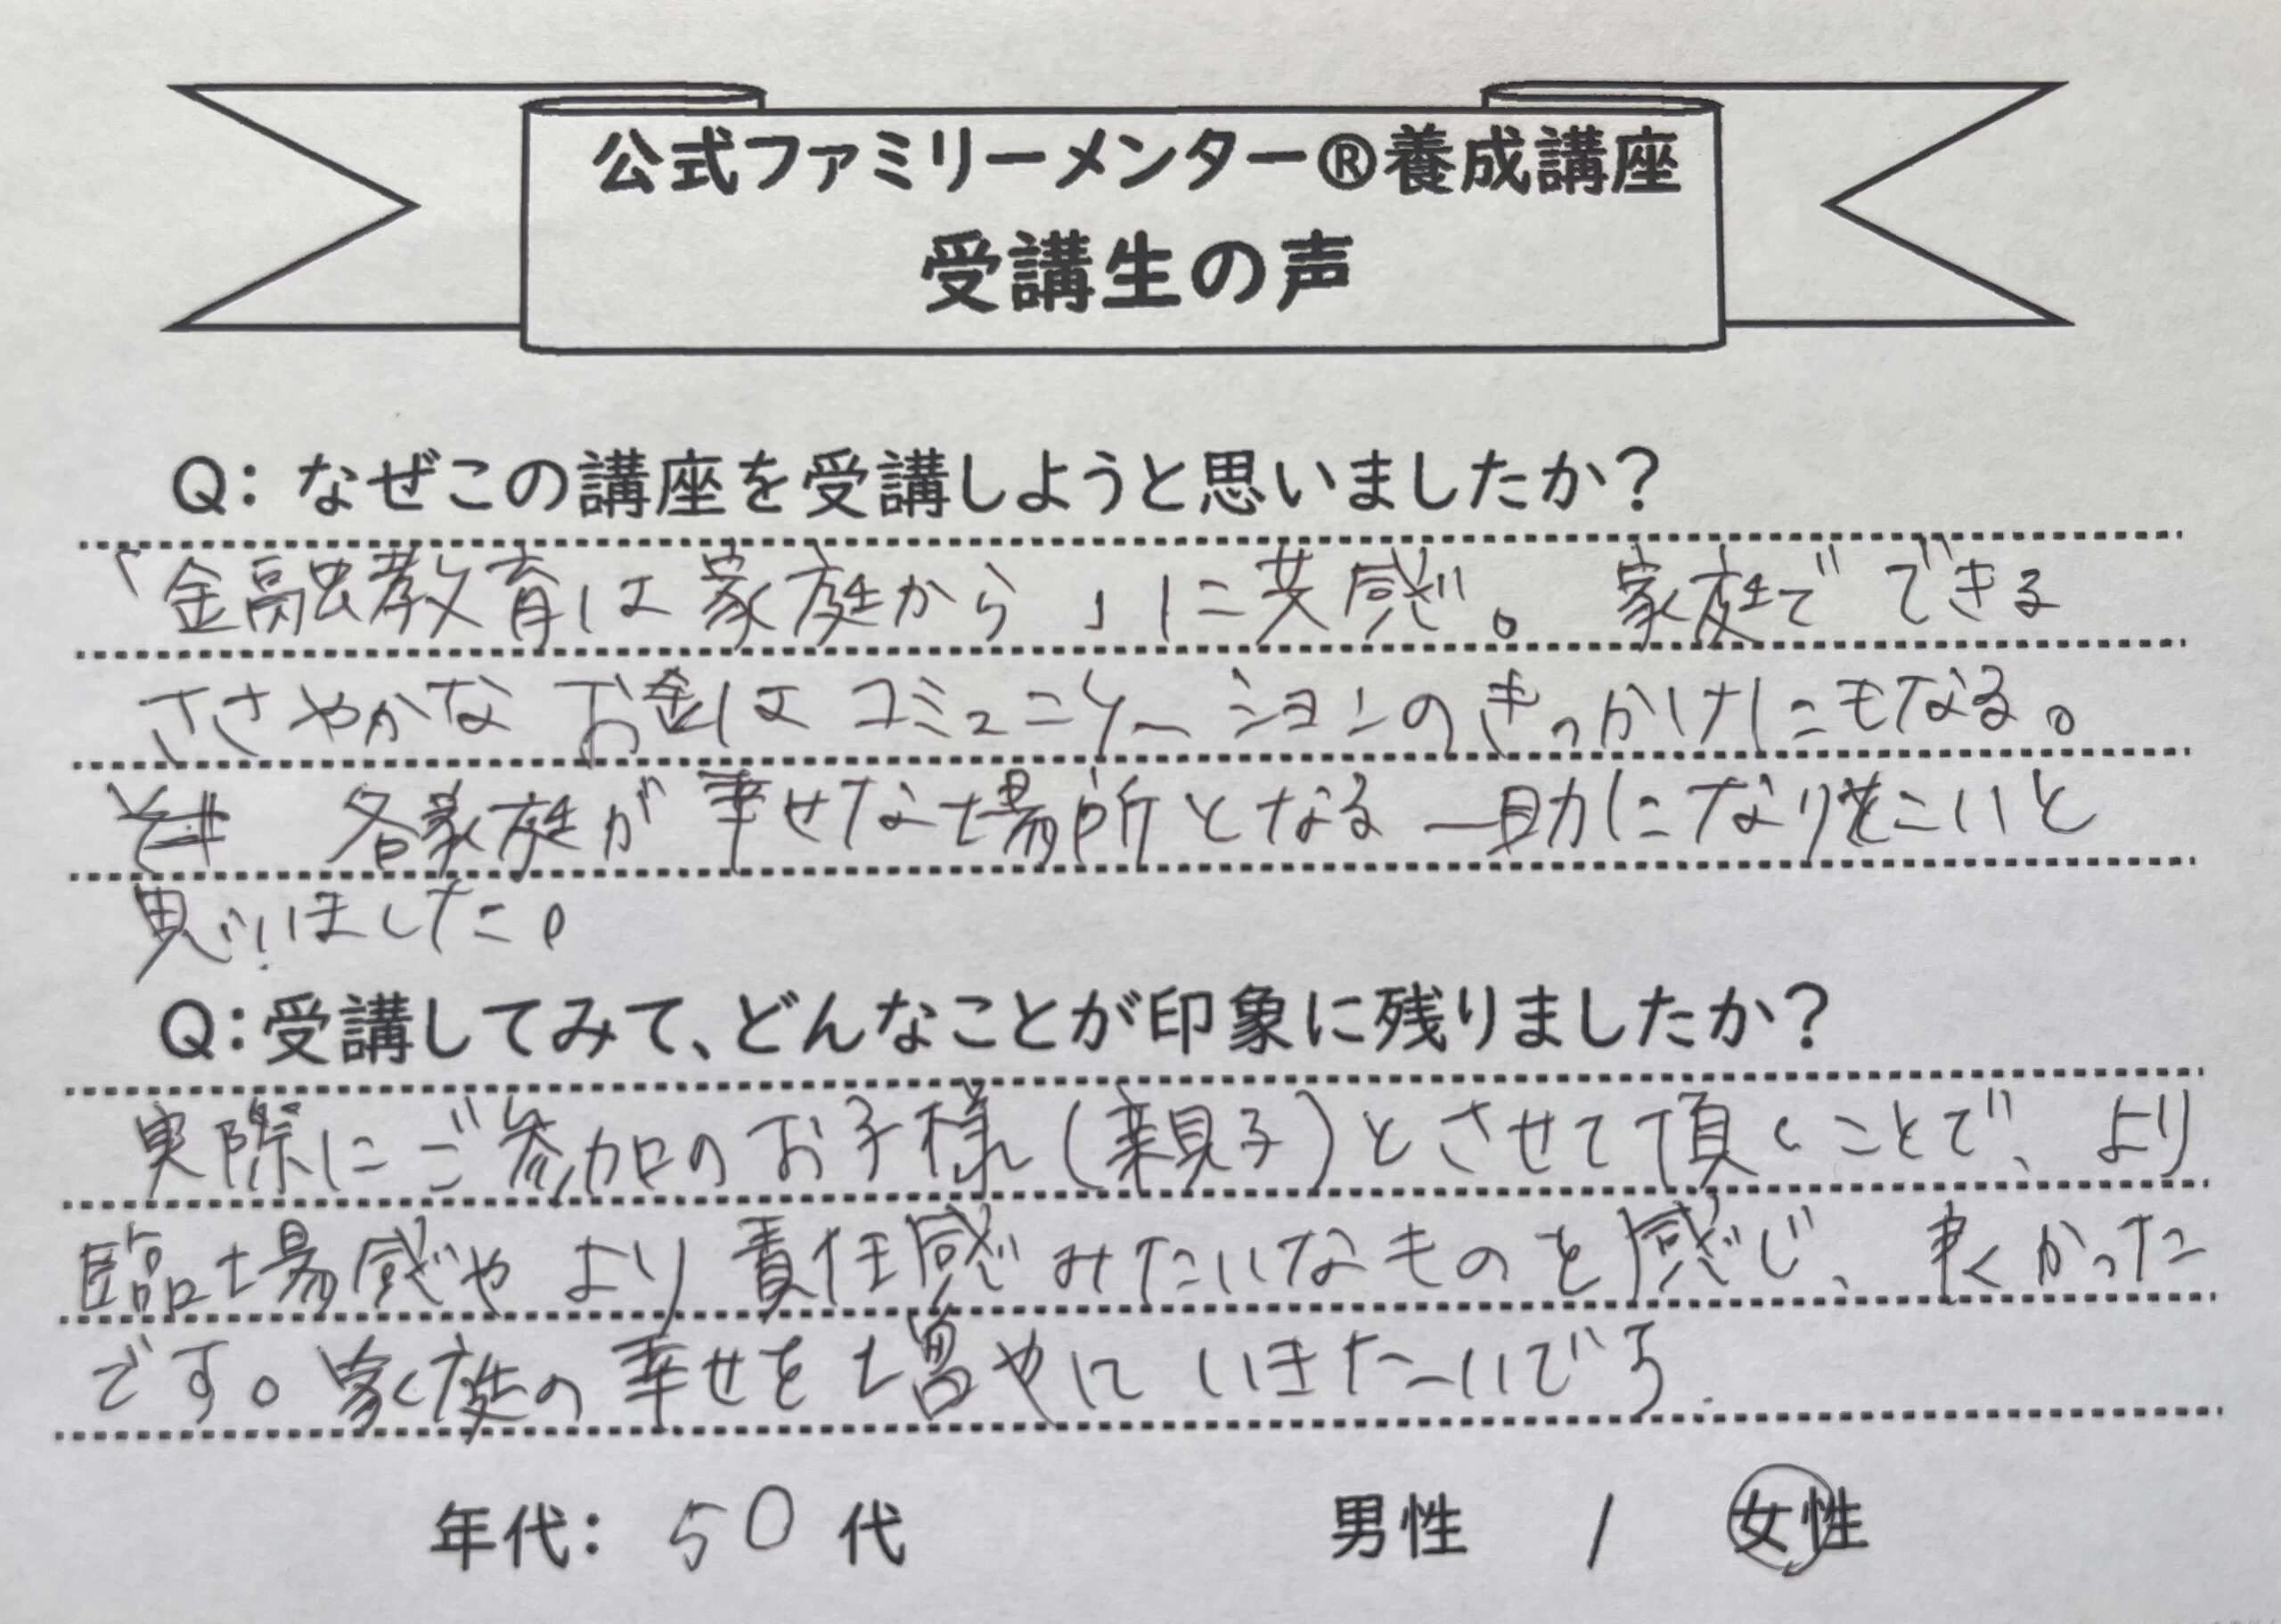 公式ファミリーメンター®養成講座
受講生の声
Q: なぜこの講座を受講しようと思いましたか?
「金融教育は家庭から」に共感。 家庭で できる
ささやかな お金は コミュニケーションのきっかけにもなる。
各家庭が幸せな場所となる一助になりたいと
思いました。
Q:受講してみて、どんなことが印象に残りましたか?
実際にご参加のお子様(親子)とさせて頂くことで、より
臨場感や より責任感みたいなものを感じ、良かった
です。家庭の幸せを増やしに いきたいです.
年代: 50 代 男性 / 女性